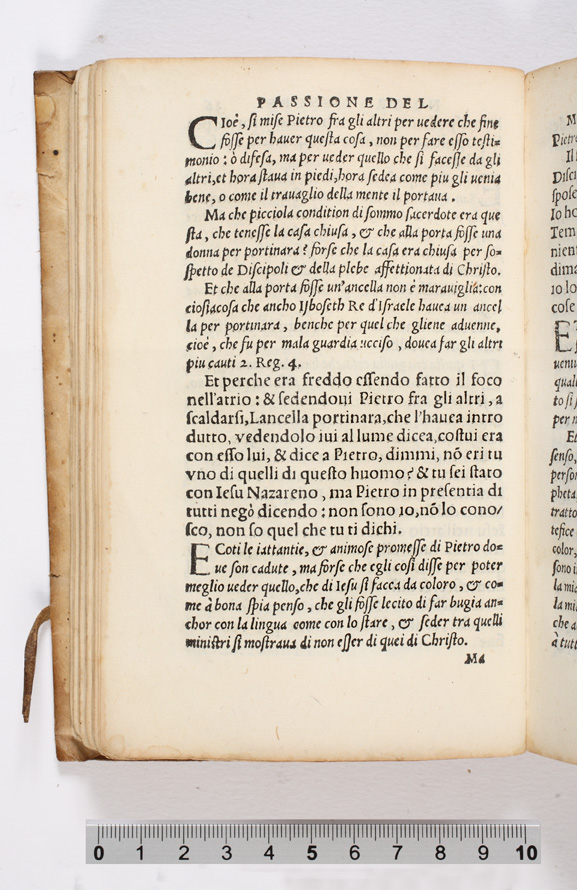 PASSIONE DEL
CIoè, si mise Pietro fra gli altri per uedere che fine
fosse per hauer questa cosa, non per fare esso testi=
monio: ò difesa, ma per ueder quello che si facesse da gli
altri, et hora staua in piedi, hora sedea come piu gli uenia
bene, o come il trauaglio della mente il portaua.
Ma che picciola condition di sommo sacerdote era que
sta, che tenesse la casa chiusa, & che alla porta fosse una
donna per portinara? forse che la casa era chiusa per so=
spetto de Discipoli & della plebe affettionata di Christo.
Et che alla porta fosse un'ancella non è marauiglia: con
ciosiacosa che ancho Isboseth Re d'Israele hauea un ancel
la per portinara, benche per quel che gliene aduenne,
cioè, che fu per mala guardia ucciso, douea far gli altri
piu cauti 2. Reg. 4.
Et perche era freddo essendo fatto il foco
nell'atrio: & sedendoui Pietro fra gli altri, a
scaldarsi, Lancella portinara, che l'hauea intro
dutto, vedendolo iui al lume dicea, costui era
con esso lui, & dice a Pietro, dimmi, nō eri tu
vno di quelli di questo huomo? & tu sei stato
con Iesu Nazareno, ma Pietro in presentia di
tutti negò dicendo: non sono io, nō lo cono/
sco, non so quel che tu ti dichi.
ECoti le iattantie, & animose promesse di Pietro do=
ue son cadute, ma forse che egli cosi disse per poter
meglio ueder quello, che di Iesu si facea da coloro, & co=
me à bona spia penso, che gli fosse lecito di far bugia an=
chor con la lingua come con lo stare, & seder tra quelli
ministri si mostraua di non esser di quei di Christo.
Ma
M
Pietro
Il
Disci
spose
Io ho
Tem
nien
dima
io lo
cose
ET
uenu
quali
to si
per n
Et
senso,
person
pheta
tratto
tefice
color,
sono i
la mia
la mi
che a
à tutt
0 1 2 3 4 5 6 7 8 9 10